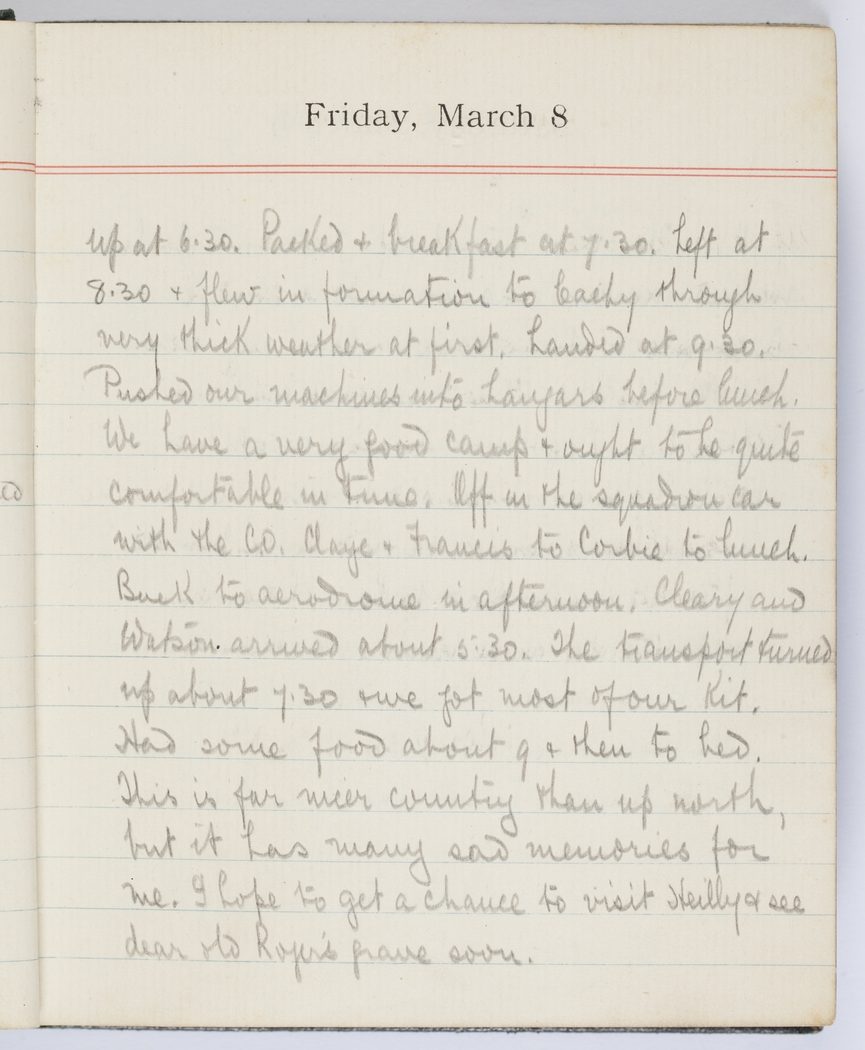 Friday, March 8
up at 6.30. Packed & breakfast at 7.30. Left at
8.30 & flew in formation to Cachy through
very thick weather at first. Landed at 9.30.
Pushed our machines into hangars before lunch.
We have a very good camp & ought to be quite
comfortable in time. Off in the squadron car
with the CO. Claye & Francis to Corbie to lunch.
Back to aerodrome in afternoon. Cleary and
Watson arrived about 5.30. The transport turned
up about 7.30 & we got most of our kit.
Had some food about 9 & then to bed.
This is far nicer country than up north,
but it has many sad memories for
me. I hope to get a chance to visit Heilly & see
dear old Roger's grave soon.